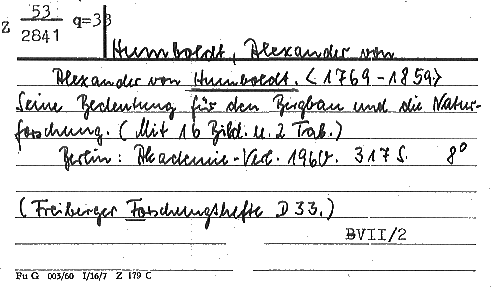 Z 53/2841 q=33
Humboldt, Alexander von
Alexander von Humboldt. <1769-1859>
Seine Bedeutung für den Bergbau und die Natur-
forschung. (Mit 16 Bild. u. 2 Tab.)
Berlin: Akademie-Verl. 1960. 317 S. 8°
(Freiberger Forschungshefte D 33.)
BVII/2
Fu G 003/60 I/16/7 Z 179 C